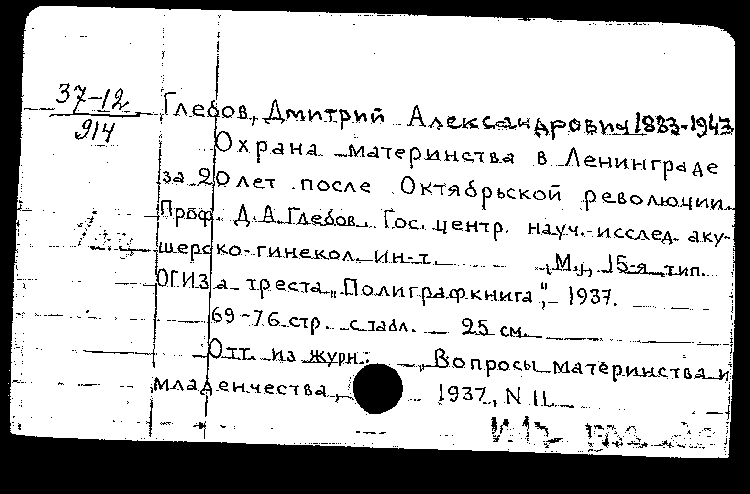 37-12
914
Глебов, Дмитрий Александрович 1883-1943
Охрана материнства в Ленинграде
за 20 лет после Октябрьской революции.
Проф. Д.А. Глебов. Гос. центр. науч.-исслед. аку-
шерско-гинекол. ин-т. М., 15-я тип.
ОГИЗа треста „Полиграфкнига", 1937.
69-76 стр. с табл. 25 см.
Отт. из журн.: „Вопросы материнства и
младенчества, 1937, N 11.